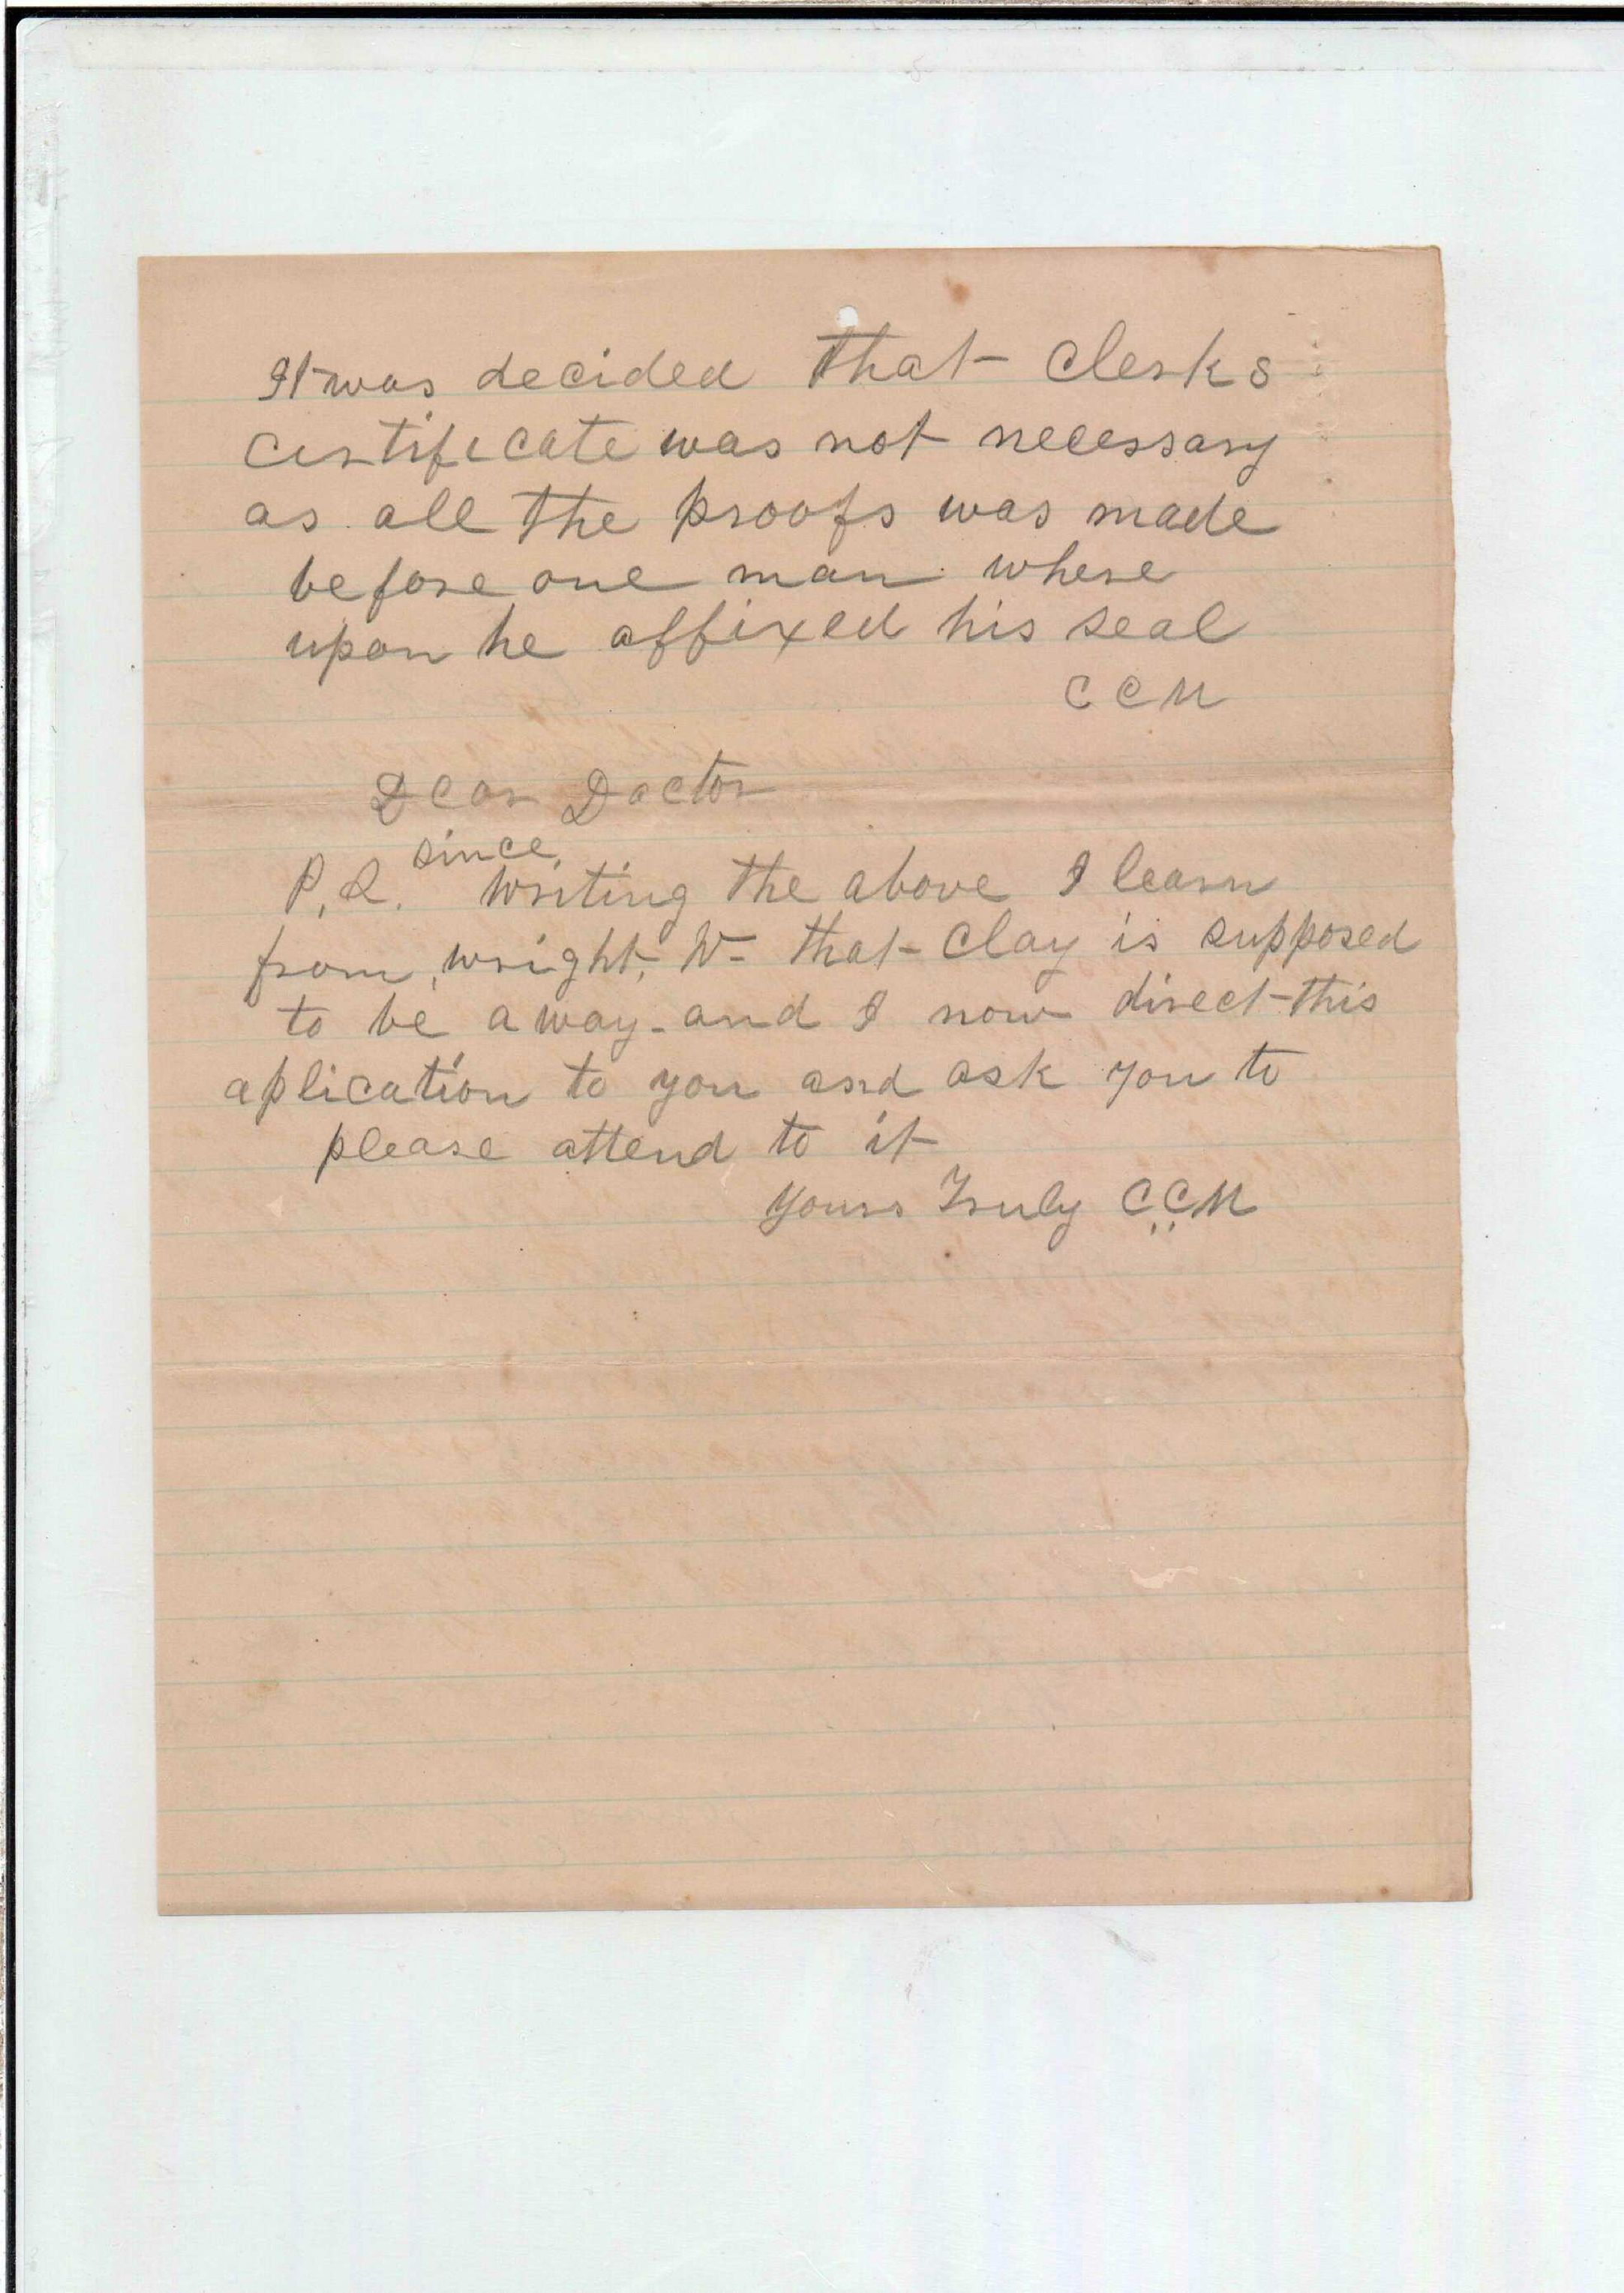 It was decided that clerks
certificate was not necessary
as all the proofs was made
before one man where
upon he affixed his seal
C C M
Dear Doctor
since
P.S. writing the above I learn
from, wright, W- that Clay is supposed
to be away - and I now direct this
aplication to you and ask you to
please attend to it
Yours Truly C.C.M